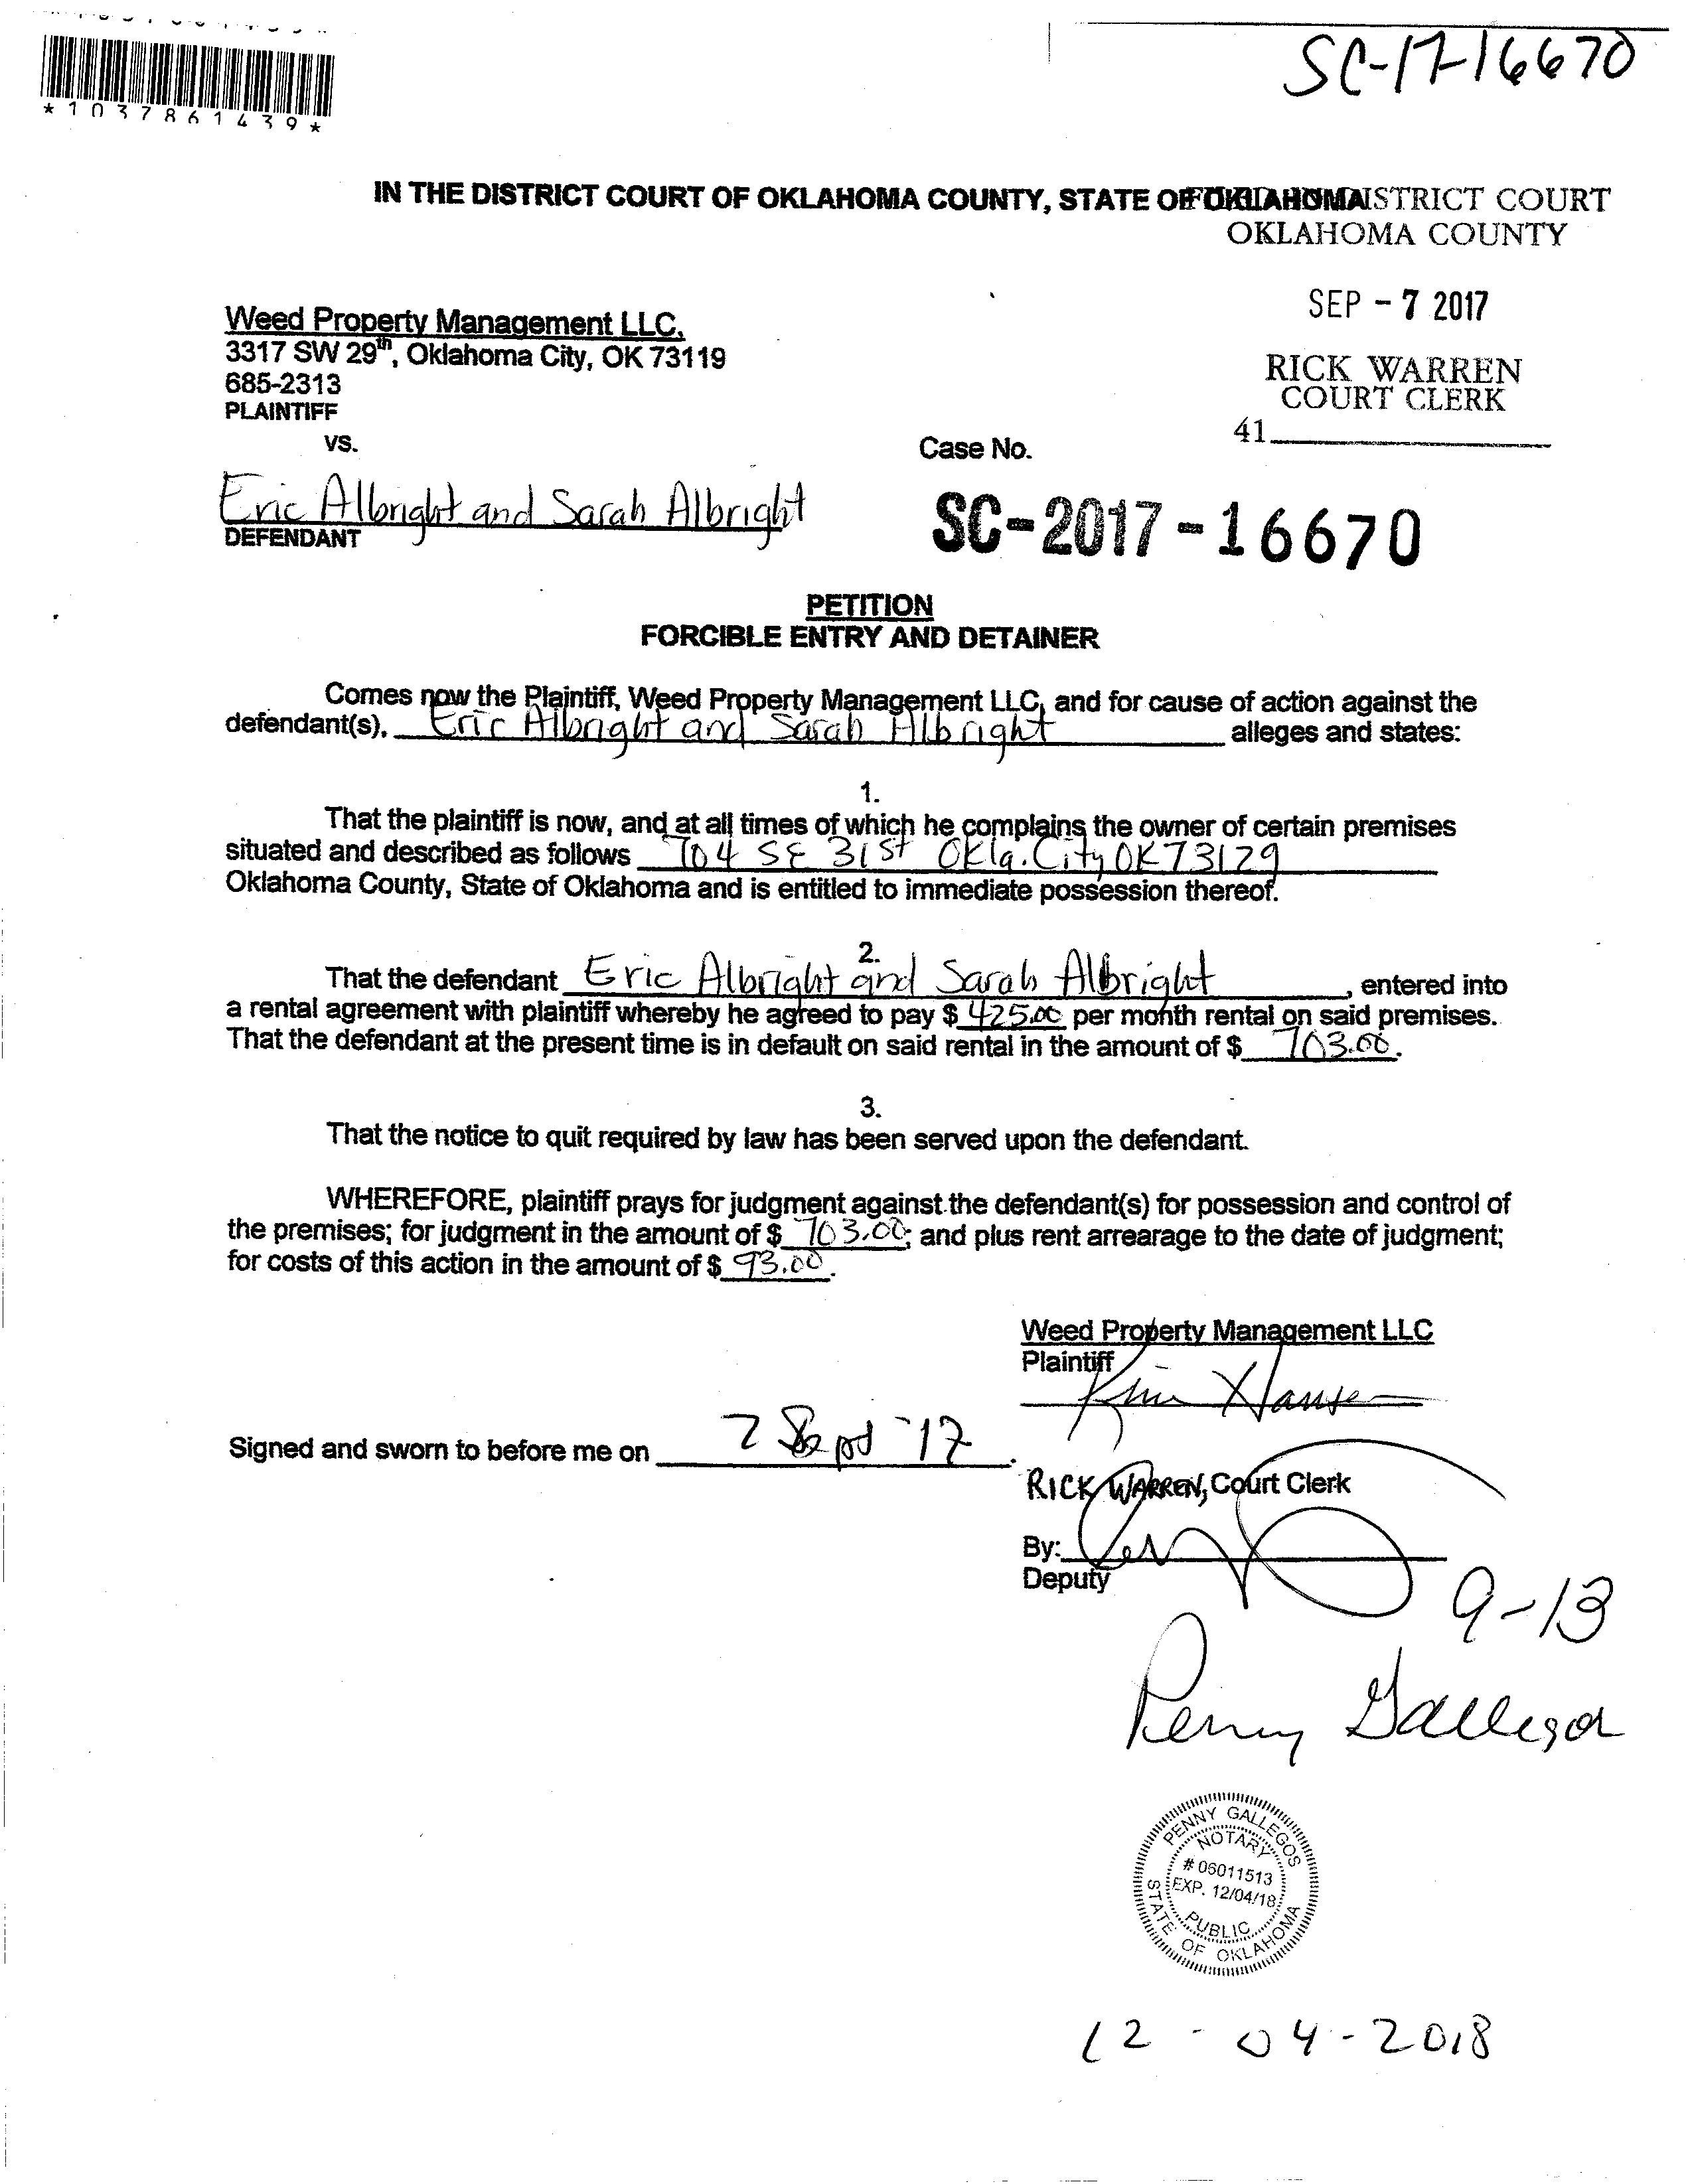 SC-17-16670
*1037861439*
IN THE DISTRICT COURT OF OKLAHOMA COUNTY, STATE OF OKLAHOMA
FILED IN DISTRICT COURT
OKLAHOMA COUNTY
SEP - 7 2017
RICK WARREN
COURT CLERK
41
Weed Property Management LLC.
3317 SW 29th, Oklahoma City, OK 73119
685-2313
PLAINTIFF
vs.
Case No.
Eric Albright and Sarah Albright
DEFENDANT
SC-2017-16670
PETITION
FORCIBLE ENTRY AND DETAINER
Comes now the Plaintiff, Weed Property Management LLC, and for cause of action against the
defendant(s), Eric Albright and Sarah Albright alleges and states:
1.
That the plaintiff is now, and at all times of which he complains the owner of certain premises
situated and described as follows 704 SE 31st Okla. City OK 73129
Oklahoma County, State of Oklahoma and is entitled to immediate possession thereof.
2.
That the defendant Eric Albright and Sarah Albright, entered into
a rental agreement with plaintiff whereby he agreed to pay $ 425.00 per month rental on said premises.
That the defendant at the present time is in default on said rental in the amount of $ 703.00.
3.
That the notice to quit required by law has been served upon the defendant.
WHEREFORE, plaintiff prays for judgment against the defendant(s) for possession and control of
the premises; for judgment in the amount of $ 703.00; and plus rent arrearage to the date of judgment;
for costs of this action in the amount of $ 93.00.
Weed Property Management LLC
Plaintiff
Signed and sworn to before me on 7 Sept '17.
RICK WARREN, Court Clerk
By:
Deputy
9-13
Penny Gallegos
PENNY GALLEGOS
NOTARY
# 06011513
EXP. 12/04/18
PUBLIC
STATE OF OKLAHOMA
12-04-2018